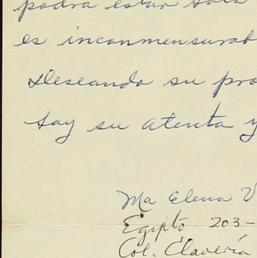 podrá estar sola
es inconmensurab
Deseando su pro
soy su atenta y
Ma Elena V
Egipto 203-
Col. Clavería